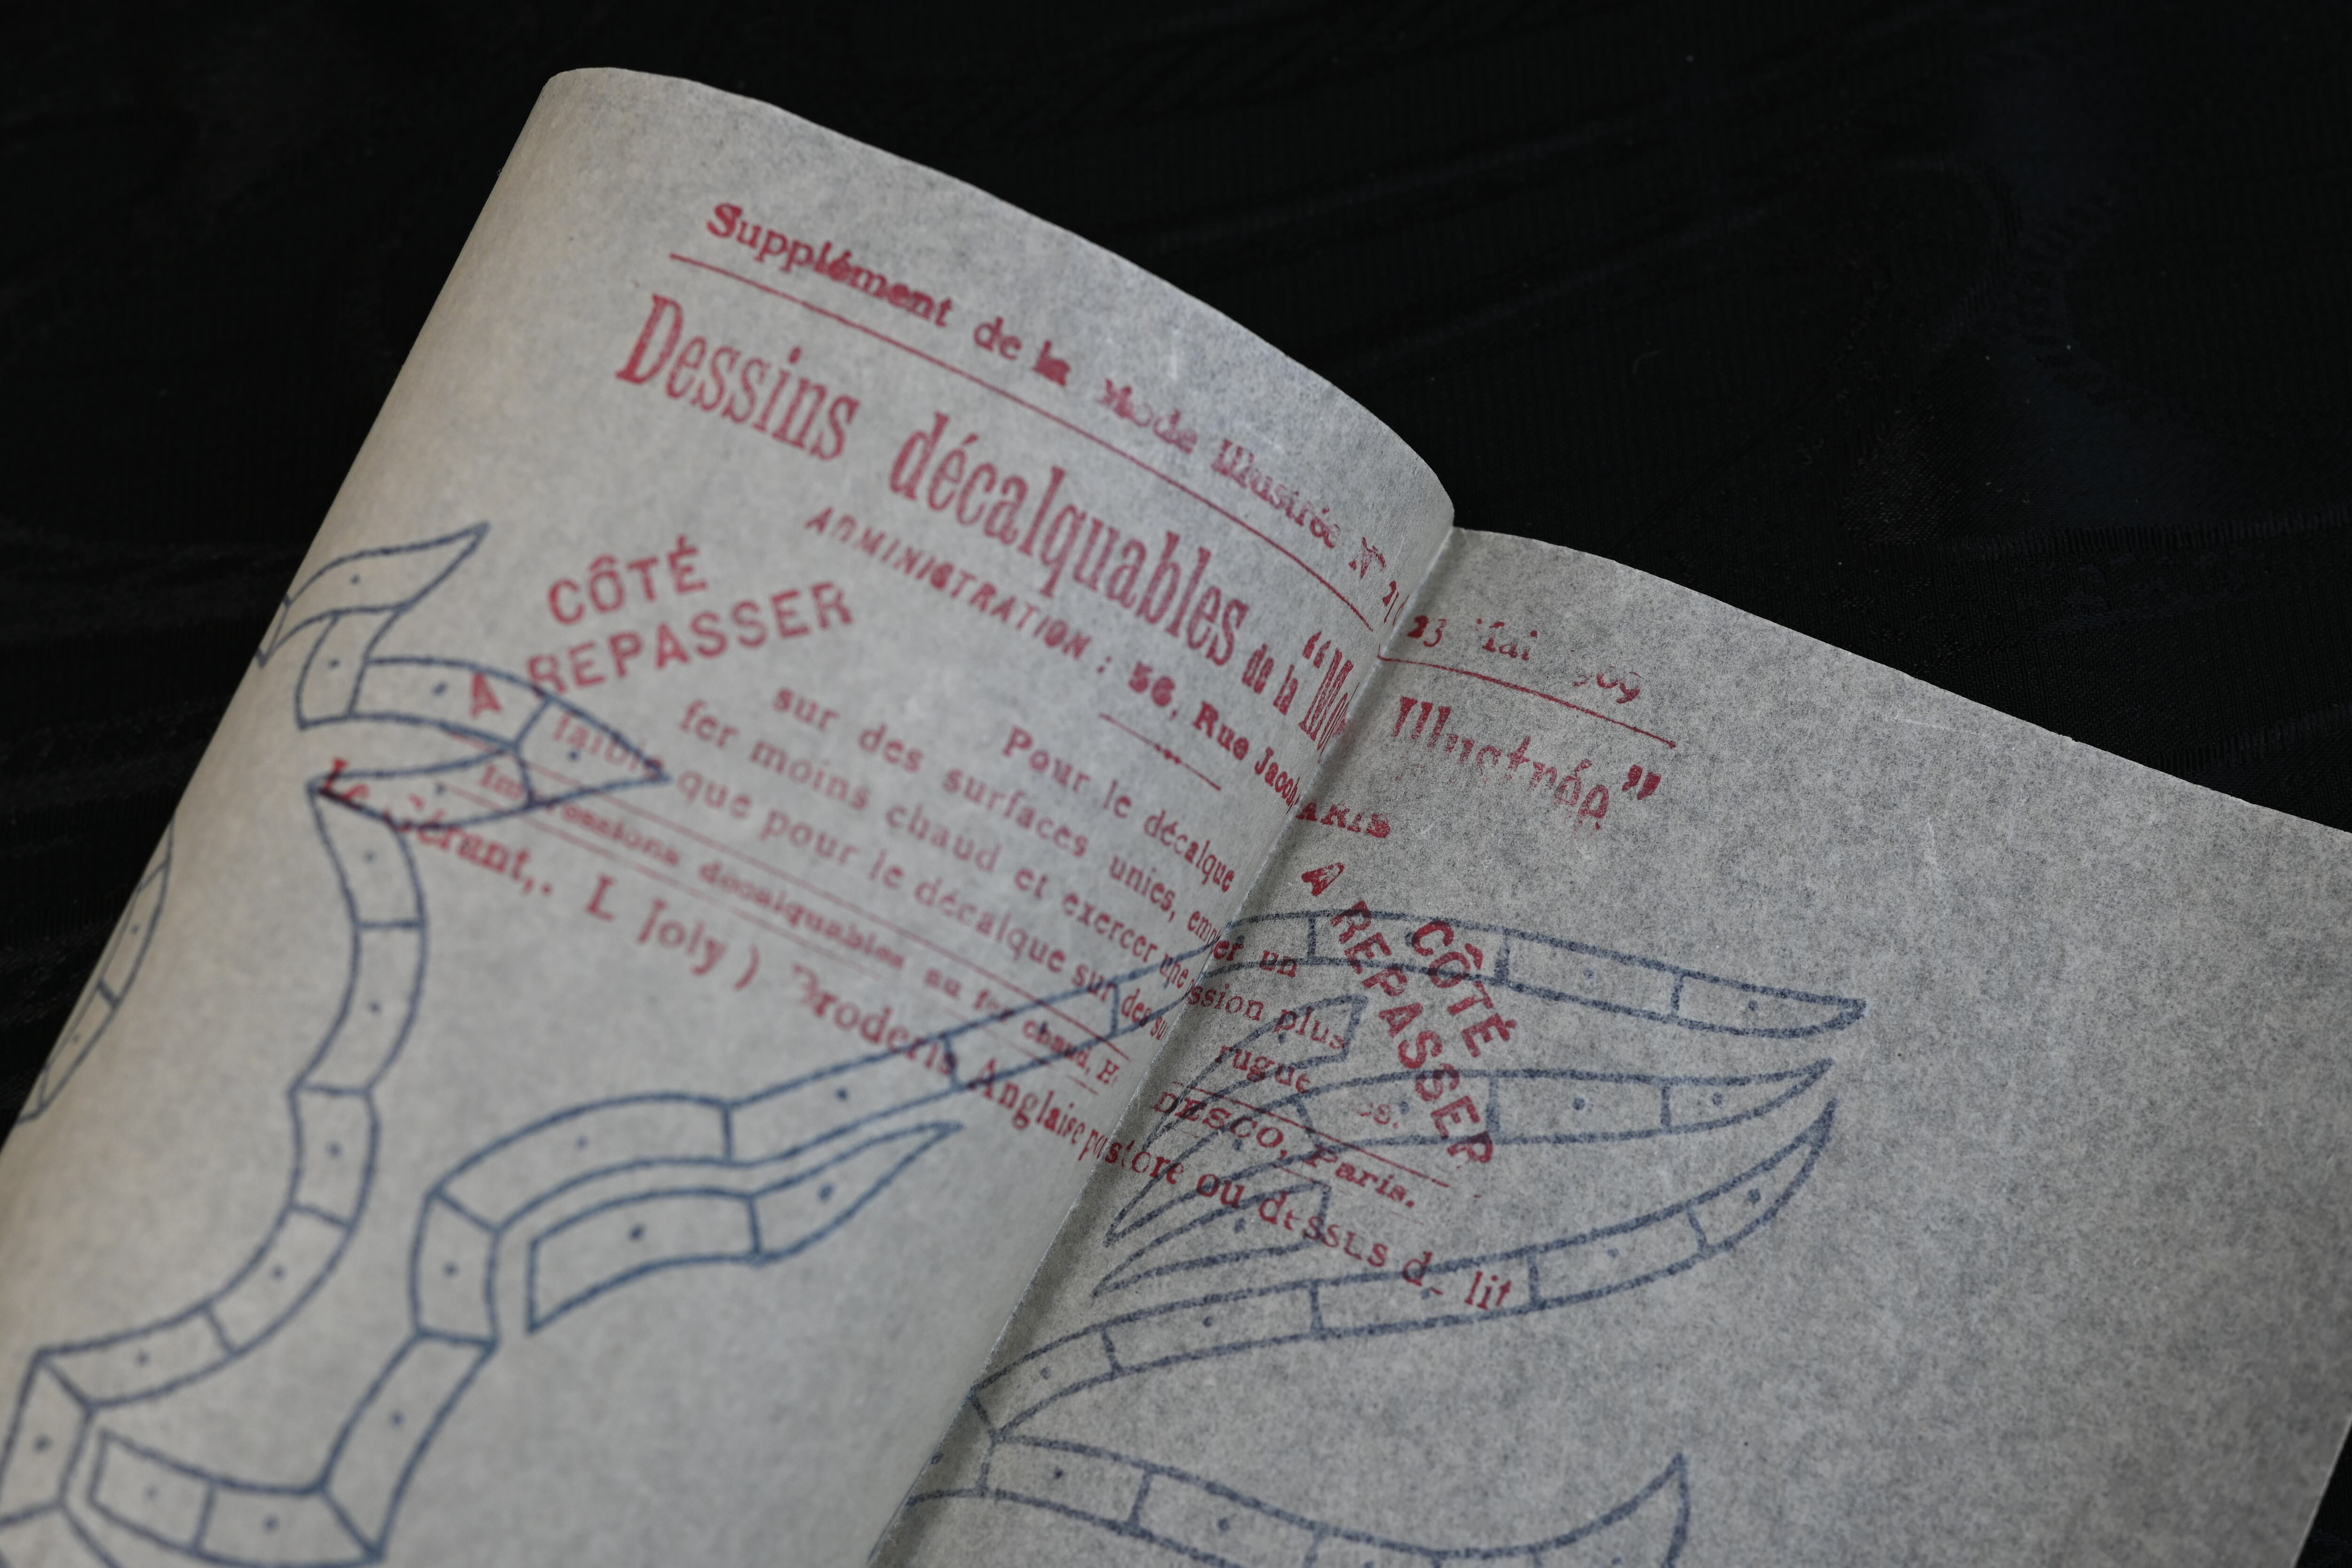 Supplément de la Mode Illustrée N° 23 Mai 909
Dessins décalquables de la "Mode Illustrée"
ADMINISTRATION : 56, Rue Jacob, PARIS
CÔTÉ
A REPASSER
CÔTÉ
A REPASSER
Pour le décalque
sur des surfaces unies, employer un
fer moins chaud et exercer une pression plus
faible que pour le décalque sur des surfaces rugueuses.
Impressions décalquables au fer chaud, DESCO, Paris.
Le Gérant,. L Joly ) Broderis Anglaise pr store ou dessus d_ lit